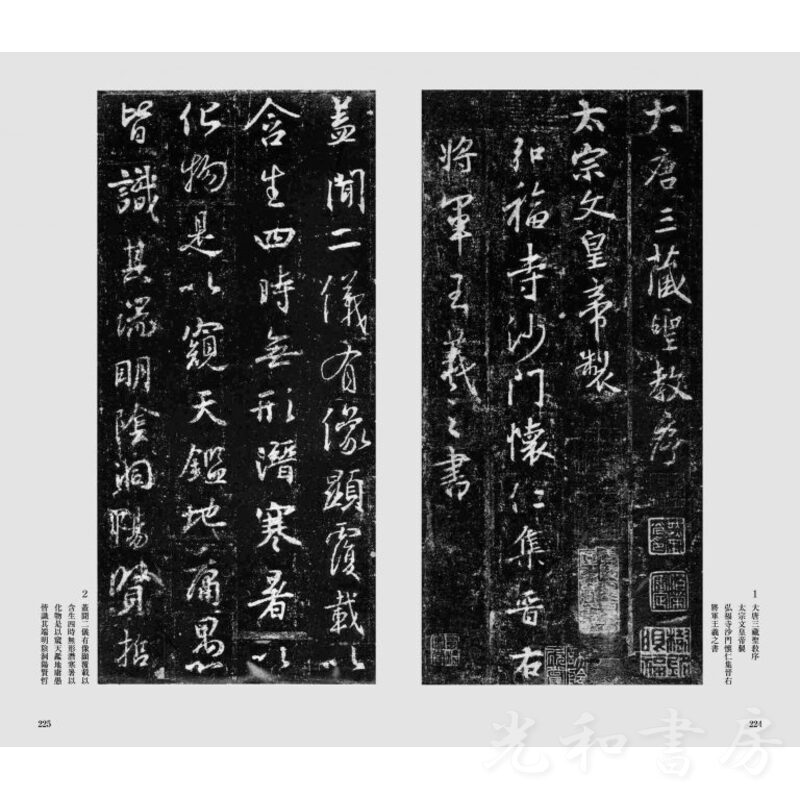 大唐三藏聖教序
太宗文皇帝製
弘福寺沙門懷仁集晉右
將軍王羲之書
1
大唐三藏聖教序
太宗文皇帝製
弘福寺沙門懷仁集晉右
將軍王羲之書
224
蓋聞二儀有像顯覆載以
含生四時無形潛寒暑以
化物是以窺天鑑地庸愚
皆識其端明陰洞陽賢哲
2
蓋聞二儀有像顯覆載以
含生四時無形潛寒暑以
化物是以窺天鑑地庸愚
皆識其端明陰洞陽賢哲
225
光和書房